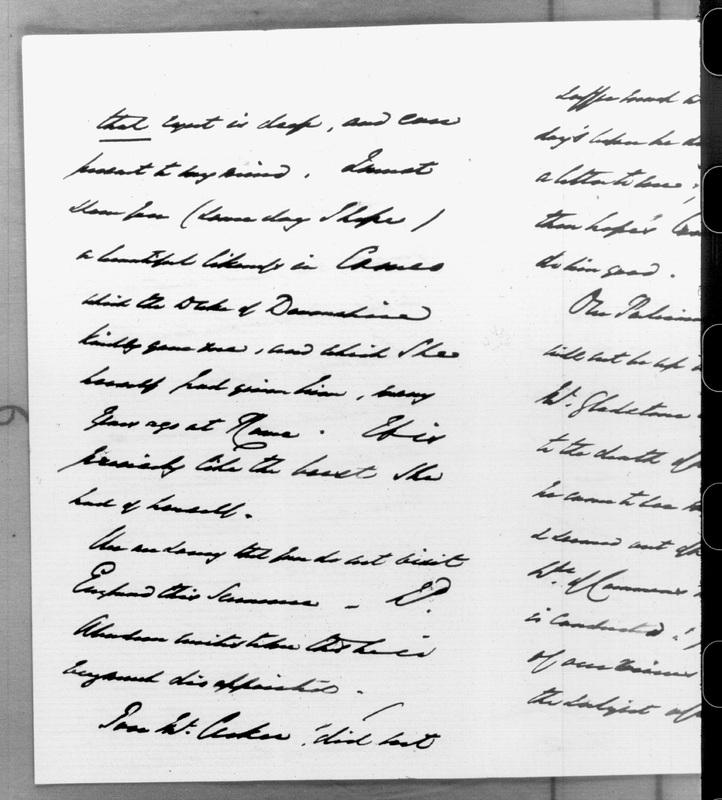 that regret is deep, and ever
present to my mind. I must
show you (some day I hope)
a beautiful likeness in Cameo
which the Duke of Devonshire
kindly gave me, and which She
herself had given him, many
Years ago at Rome. It is
precisely like the bust She
had of herself.
We are sorry that you do not visit
England this Summer - Ld.
Aberdeen writes to me that he is
very much dis appointed.
Poor Mr. did not
suffer much
days before he
a letter to me;
then hopes
do him good.
Our
will not be up
Mr. Gladstone
to the death of
he came to see
seemed out of
of Commons
is conducted
of our
the subject of